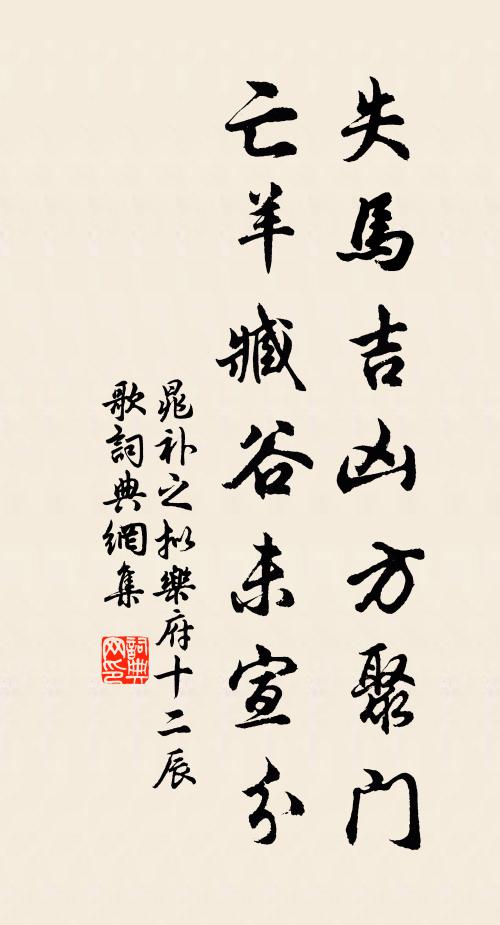 失馬吉凶方聚門
亡羊臧谷未宣分
晁补之拟樂府十二辰
歌詞典網集
詞典网印